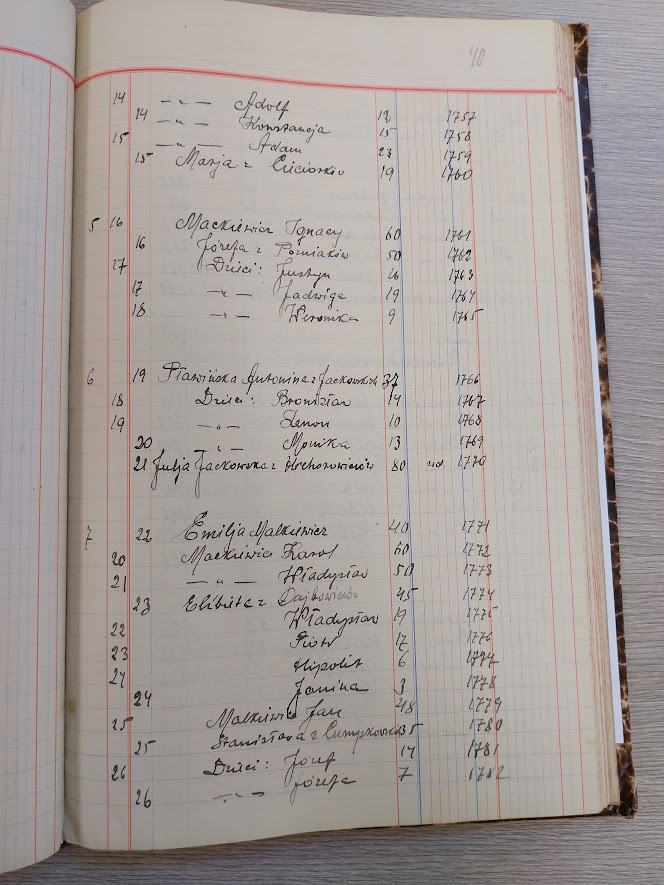 40
14 — " — Adolf 12 1757
14 — " — Konstancja 15 1758
15 — " — Adam 23 1759
15 Marja z 19 1760
5 16 Mackiewicz Ignacy 60 1761
16 Józefa z Poźniaków 50 1762
17 Dzieci: Justyn 16 1763
17 — " — Jadwiga 19 1764
18 — " — Weronika 9 1765
6 19 Pławińska Antonina z Jackowskich 37 1766
18 Dzieci: Bronisław 14 1767
19 — " — Zenon 10 1768
20 — " — Monika 13 1769
21 Julja Jackowska z 80 1770
7 22 Emilja Malkiewicz 40 1771
20 Mackiewicz Karol 60 1772
21 — " — Władysław 50 1773
23 Elżbieta z 45 1774
22 Władysław 19 1775
23 Piotr 17 1776
24 Hipolit 6 1777
24 Janina 3 1778
25 Malkiewicz Jan 48 1779
25 Stanisława z 35 1780
26 Dzieci: Józef 14 1781
26 — " — Józefa 7 1782